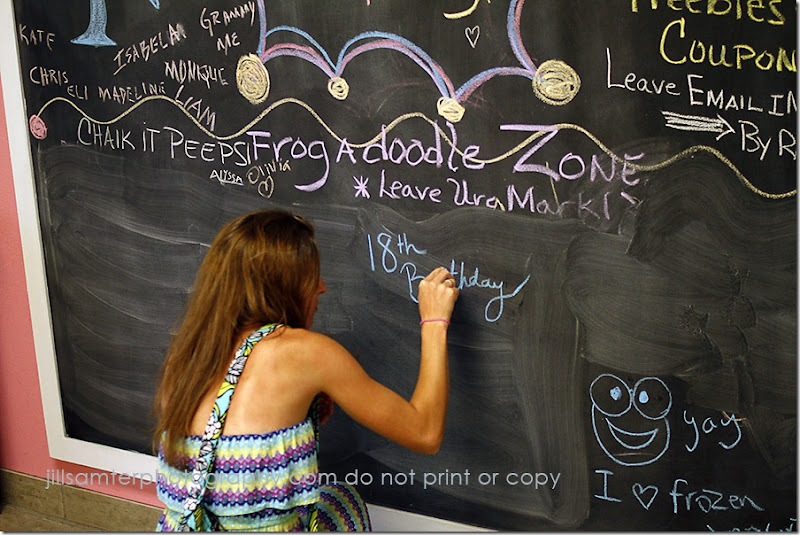 KATE
ISABELAN
GRAMMY
ME
MONIQUE
CHRIS
ELI MADELING
LIAM
FREEBIES
COUPON
LEAVE EMAIL IN
BY R
CHALK IT PEEPS!
ALYSSA
Olivia
Frog A doodle ZONE
* Leave Ura Mark!
18th
Birthday
yay
I ♡ frozen
jillsamterphotography.com do not print or copy